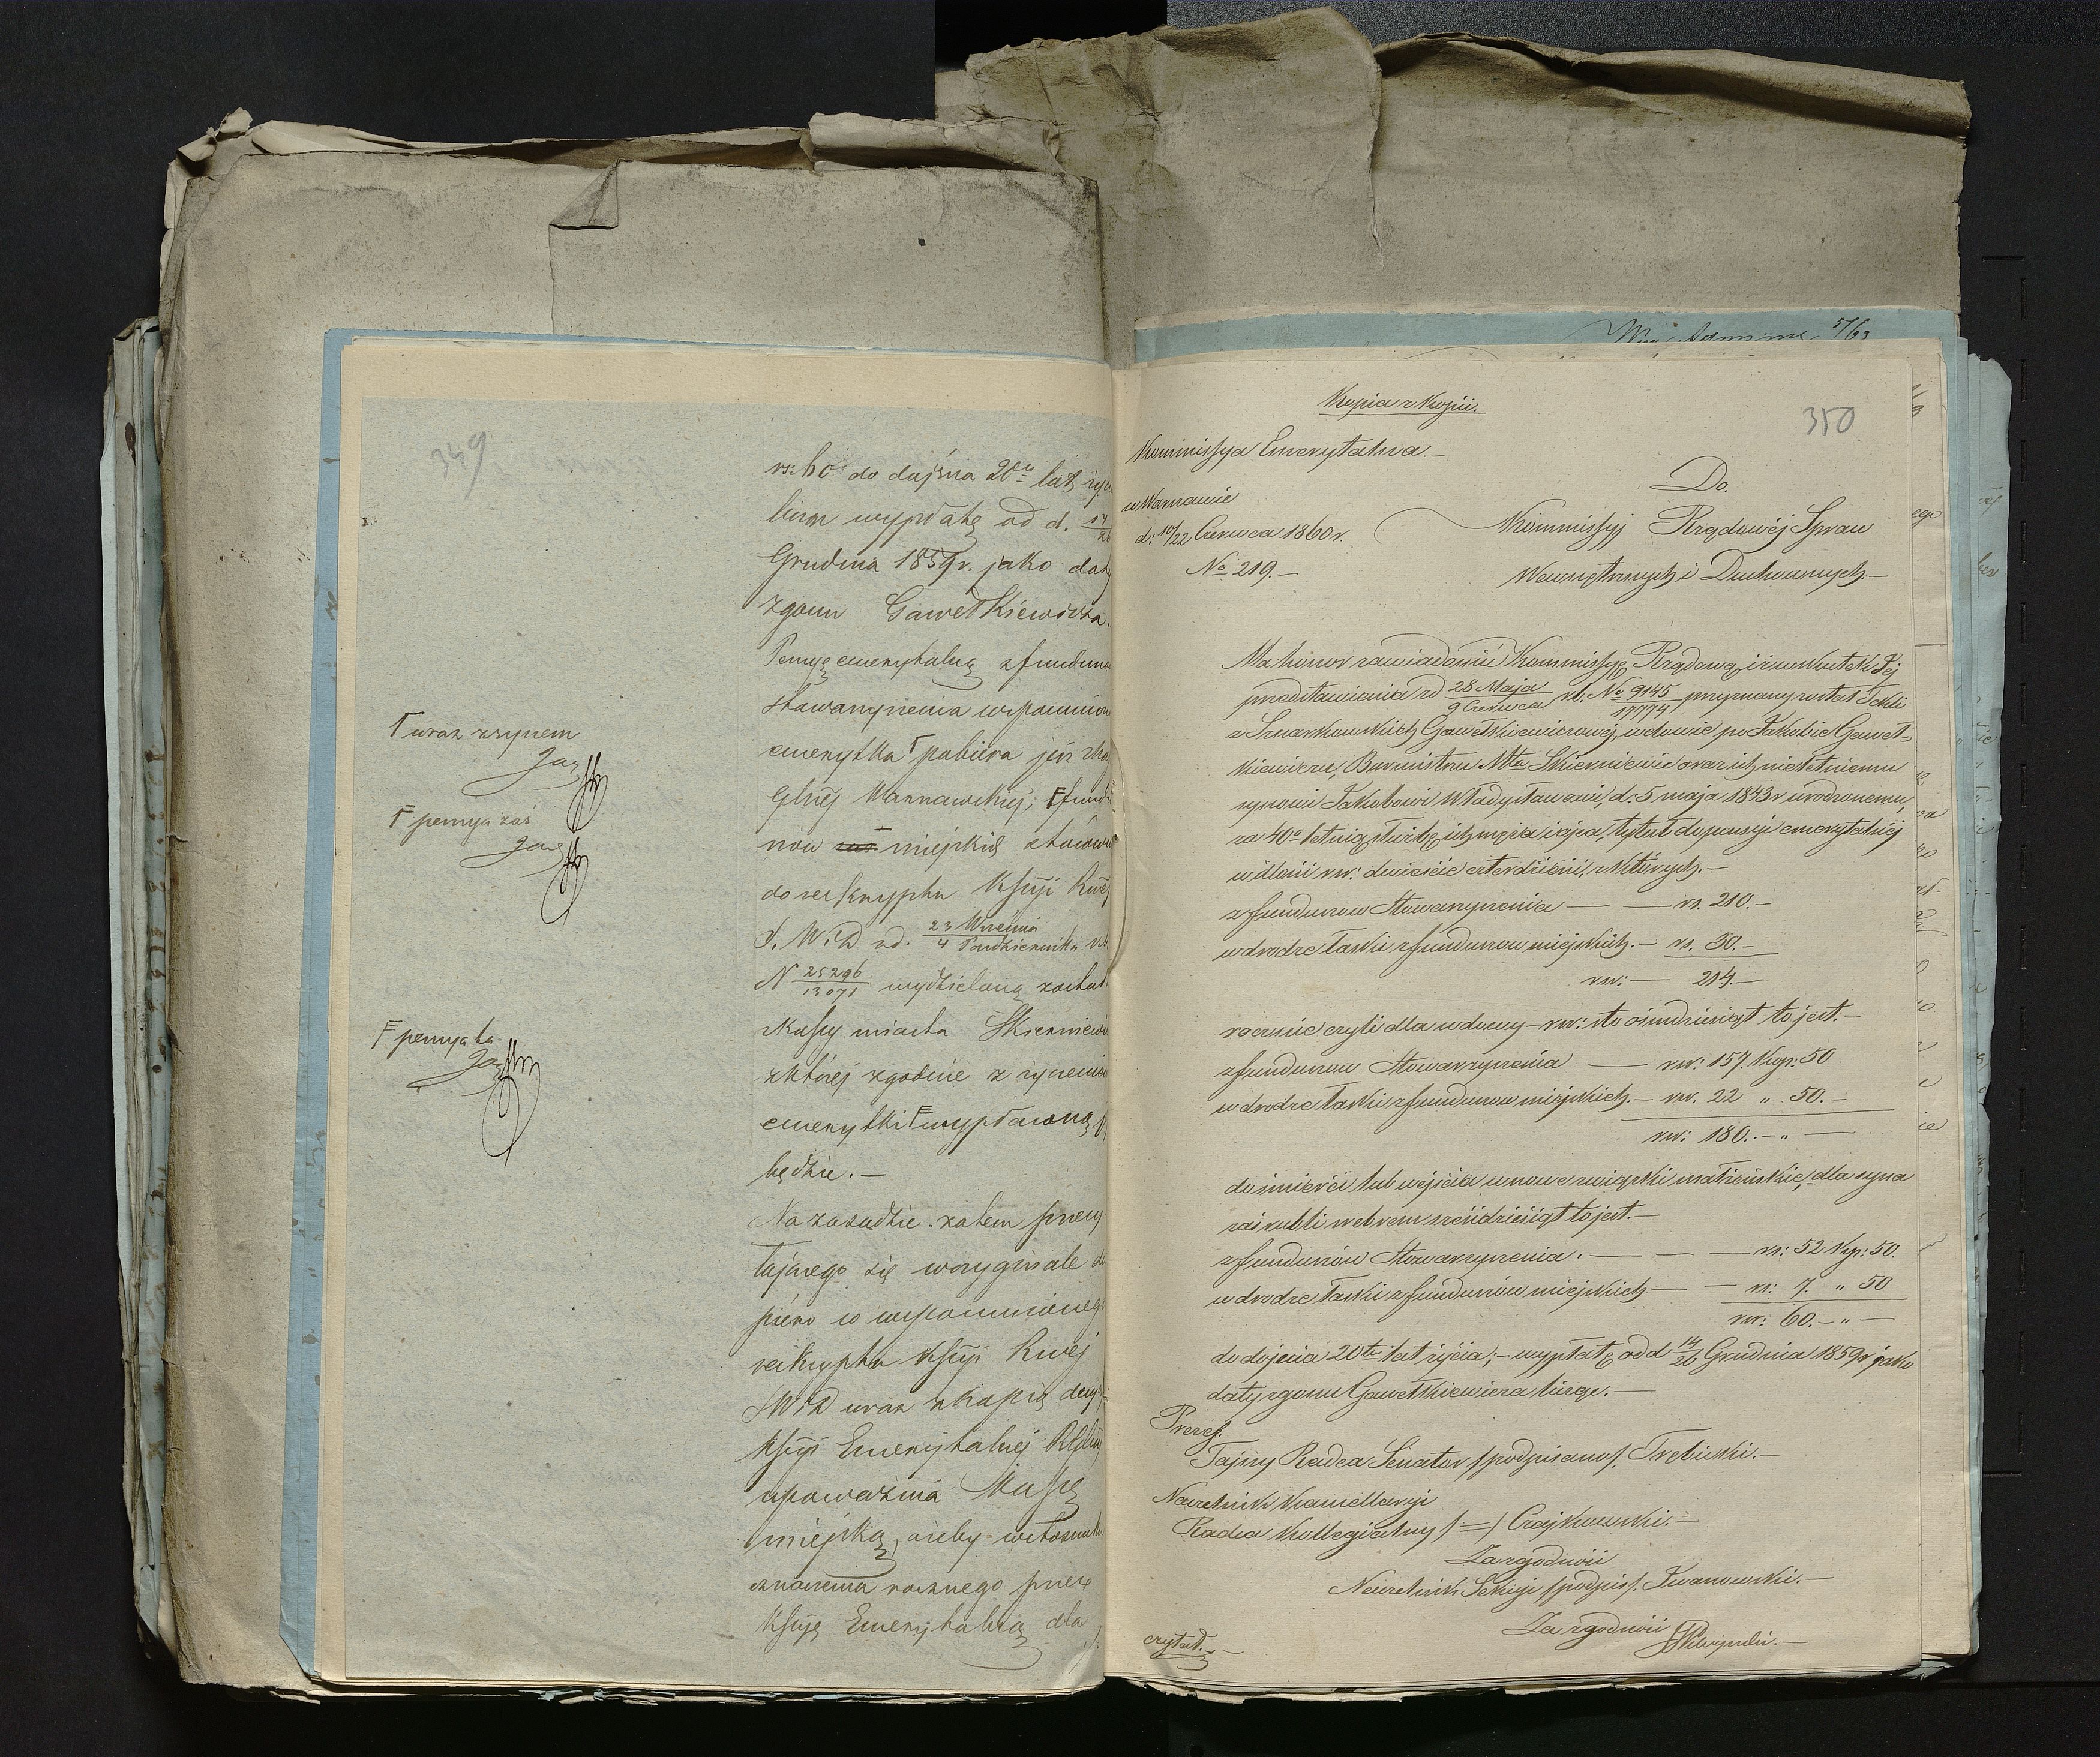 349
rs: 60 do dojścia 20tu lat życia
licząc wypłatę od d. 14/26
Grudnia 1859 r. jako daty
zgonu Gawełkiewicza.
Pensyę emerytalną z funduszu
Stowarzyszenia wspomniona
emerytka Γ pobiera już z kasy
Głnéj Warszawskiéj; F fundu
szów miejskich stósownie
do reskryptu Kssyi Rwéj
S. W. i D od. 23 Września / 4 Października
N 25296/13071 wydzieloną została
z Kassy miasta Skierniewic
z któréj zgodnie z życzeniem
emerytki F wypłacaną
będzie. —
Na zasadzie zatem
tającego się w oryginale
piero co wspomnionego
reskryptu Kssyi Rwéj
S W i D wraz z kopią decyzyi
Kssyi Emerytalnéj
upoważnia Kassę
miejską, ażeby w stosunku
oznaczenia rocznego przez
Kssyę Emerytalną dla
Γ wraz z synem
F pensya zaś
F pensya ta
Wny Admin 5/63
350
Kopia z Kopii.
Kommissya Emerytalna. —
w Warszawie
d: 10/22 Czerwca 1860 r.
No 219. —
Do.
Kommissyj Rządowéj Spraw
Wewnętrznych i Duchownych. —
Ma honor zawiadomić Kommissyę Rządową, iż w skutek Jéj
przedstawienia zd 28 Maja / 9 Czerwca rb: No 9145/17774 przyznany został Tekli
z Szwarkowskich Gawełkiewiczowéj, wdowie po Jakóbie Gaweł-
kiewiczu, Burmistrzu Mta Skierniewic oraz ich nieletniemu
synowi Jakóbowi Władysławowi, d: 5 maja 1843 r urodzonemu,
za 40o letnią służbę ich męża i ojca, tytuł do pensyi emerytalnéj
w ilości rsr: dwieście czterdzieści, z których. —
z funduszów Stowarzyszenia — — rs. 210. —
w drodze łaski z funduszów miejskich. — rs. 30. —
rsr: — 214. —
rocznie czyli dla wdowy — rsr: sto ośmdziesiąt to jest. —
z funduszów Stowarzyszenia — rsr: 157. Kop: 50
w drodze łaski z funduszów miejskich. — rsr. 22 „ 50. —
rsr: 180. — „ —
do śmierci lub wejścia w nowe związki małżeńskie, dla syna
zaś rubli srebrem sześćdziesiąt to jest. —
z funduszów Stowarzyszenia. — — — rs: 52 Kop: 50.
w drodze łaski z funduszów miejskich — — rs: 7. „ 50
rsr: 60. — „ —
do dojścia 20tu lat życia; — wypłatę od d 14/26 Grudnia 1859 r jako
daty zgonu Gawełkiewicza licząc. —
Prezes.
Tajny Radca Senator /podpisano/. Trębicki. —
Naczelnik Kancellaryi
Radca Kollegialny / = / Czajkowski. —
Za zgodność
Naczelnik Sekcyi /podpis/. Iwanowski. —
Za zgodność
czytał. —